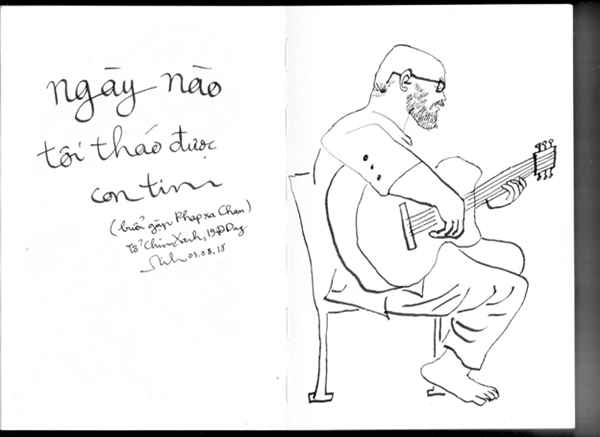 ngày nào
tôi tháo được
con tim
(buổi gặp Pháp xa Chau)
Tổ Chim Xanh, 19
03.08.18